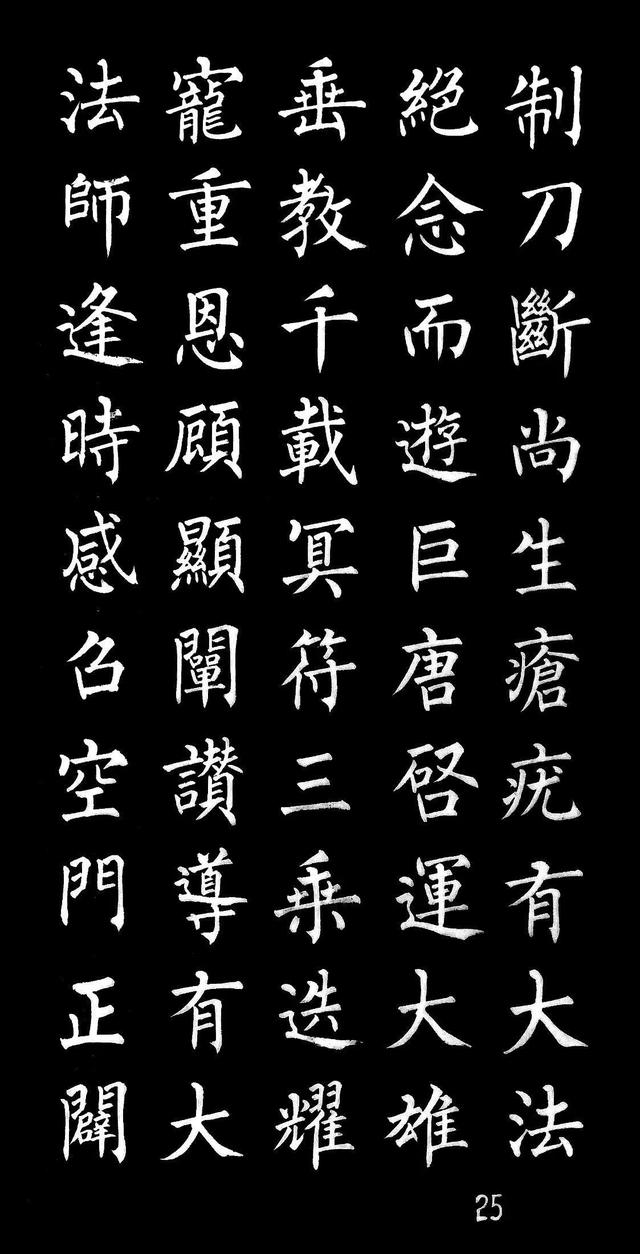 制刀斷尚生瘡疣有大法
絕念而遊巨唐啓運大雄
垂教千載冥符三乗迭耀
寵重恩顧顯闡讚導有大
法師逢時感召空門正闢
25